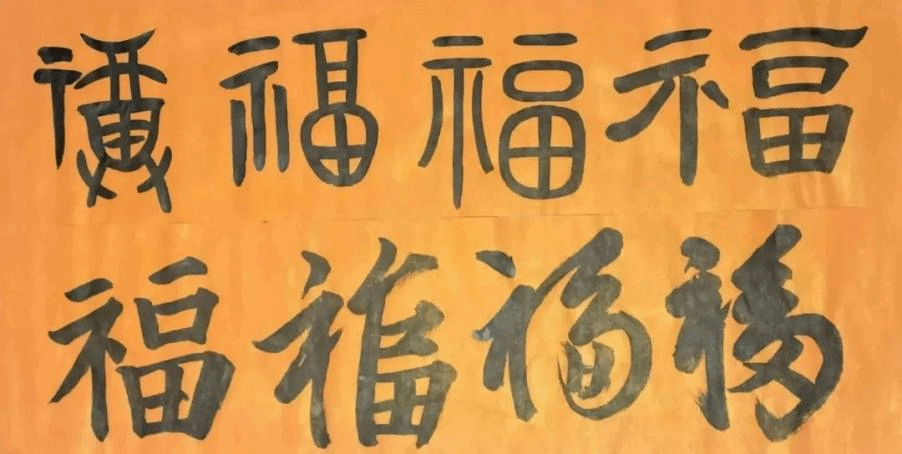 福福福福
福福福福